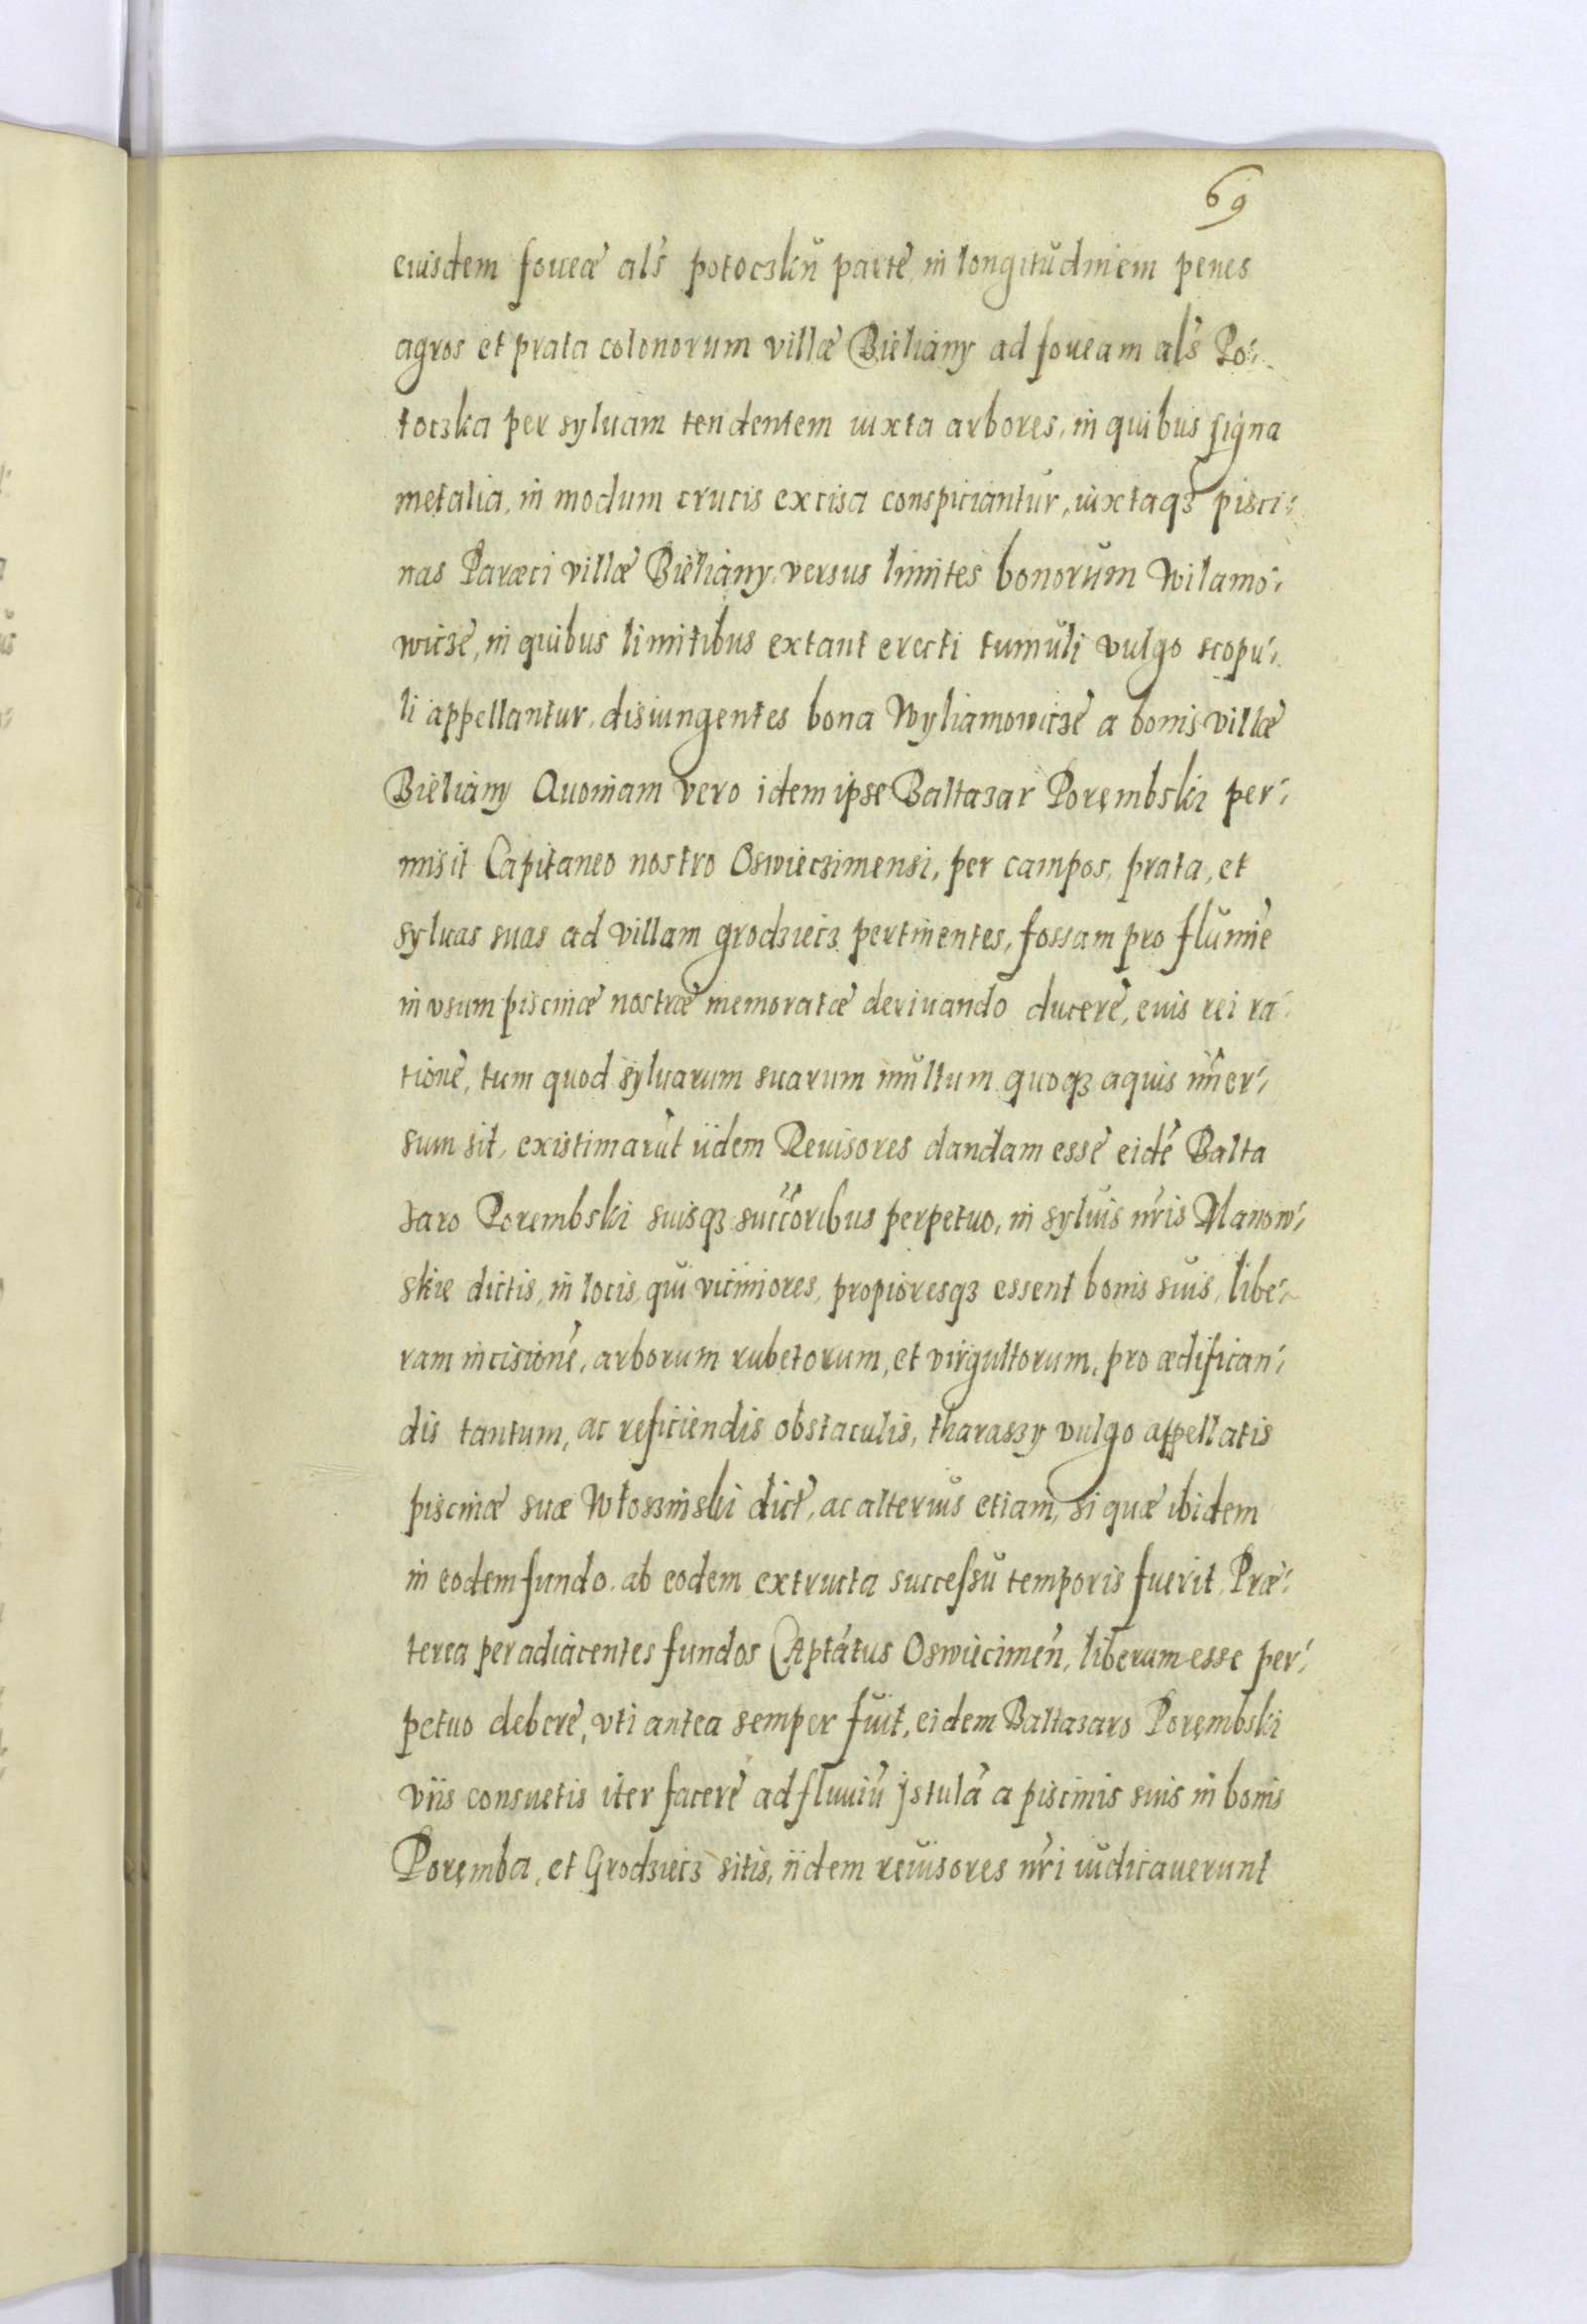 69
eiusdem foueæ als potoczkŭ partē, in longitŭdinem penes
agros et prata colonorum villæ Bieliany ad foueam als Po-
toczka per syluam tendentem iuxta arbores, in quibus signa
metalia, in modum crucis excisa conspiciantur, iuxtaqȝ pisci-
nas Paræci villæ Bieliany, versus limites bonorŭm Wilamo-
wicze, in quibus limitibus extant erecti tumŭli vulgo scopu-
li appellantur, disiungentes bona Wyliamowicze a bonis villæ
Bieliany Quoniam vero idem ipse Baltazar Porembski per-
misit Capitaneo nostro Oswieczimensi, per campos, prata, et
syluas suas ad villam grodziecz pertinentes, fossam pro flŭmīe
in vsum piscinæ nostræ memoratæ deriuando ducere, eius rei ra-
tione, tum quod syluarum suarum mŭltum quoqȝ aquis im̄er-
sum sit, existimarūt iidem Reuisores dandam esse eidē Balta
zaro Porembski suisqȝ succ̄oribus perpetuo, in syluis nr̄is Manow-
skie dictis, in locis, qui viciniores, propioresqȝ essent bonis suis, libe-
ram incisionē, arborum rubetorum, et virgultorum, pro ædifican-
dis tantum, ac reficiendis obstaculis, tharaszy vulgo appellatis
piscinæ suæ Wloszinski dict̄, ac alterius etiam, si quæ ibidem
in eodem fundo ab eodem extructa successŭ temporis fuerit, Præ-
terea per adiacentes fundos Cap̄tatus Oswiecimen̄, liberum esse per-
petuo debere, vti antea semper fŭit, eidem Baltazaro Porembski
viis consuetis iter facere ad fluuiū jstulā a piscinis suis in bonis
Poręmba, et Grodziecz sitis, iidem reuisores nr̄i iudicauerunt